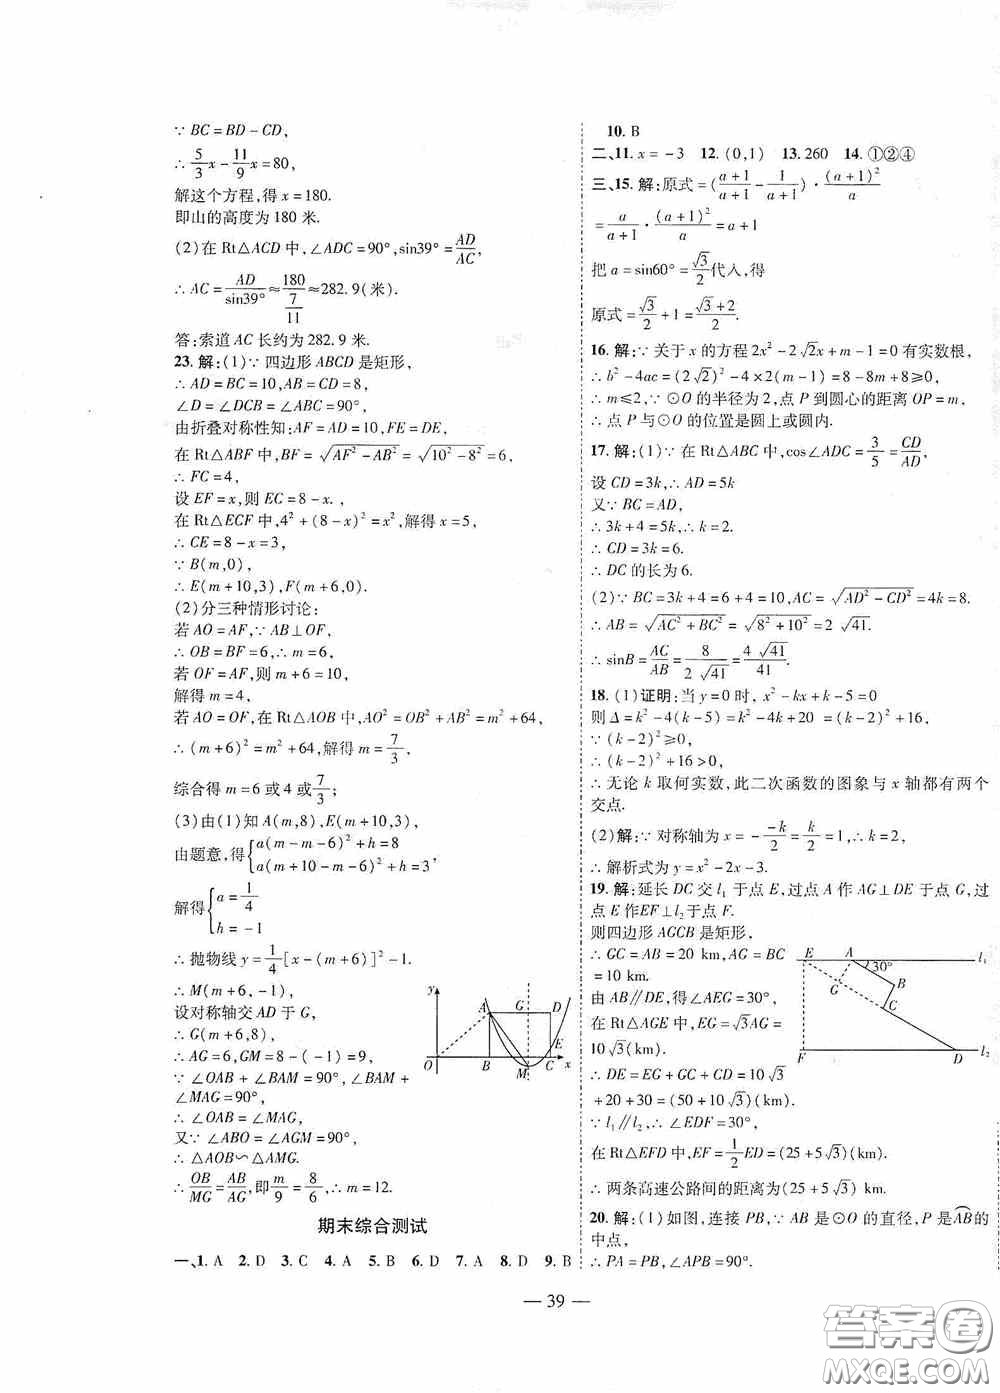 ∵ BC=BD-CD,
∴ 5/3x-11/9x=80,
解这个方程,得 x=180.
即山的高度为 180 米.
(2)在 Rt△ACD 中,∠ADC=90°,sin39°=AD/AC,
∴ AC=AD/sin39°≈180/(7/11)≈282.9(米).
答:索道 AC 长约为 282.9 米.
23.解:(1)∵ 四边形 ABCD 是矩形,
∴ AD=BC=10,AB=CD=8,
∠D=∠DCB=∠ABC=90°,
由折叠对称性知:AF=AD=10,FE=DE,
在 Rt△ABF 中,BF=√(AF²-AB²)=√(10²-8²)=6,
∴ FC=4,
设 EF=x,则 EC=8-x,
在 Rt△ECF 中,4²+(8-x)²=x²,解得 x=5,
∴ CE=8-x=3,
∵ B(m,0),
∴ E(m+10,3),F(m+6,0).
(2)分三种情形讨论:
若 AO=AF,∵ AB⊥OF,
∴ OB=BF=6,∴ m=6,
若 OF=AF,则 m+6=10,
解得 m=4,
若 AO=OF,在 Rt△AOB 中,AO²=OB²+AB²=m²+64,
∴ (m+6)²=m²+64,解得 m=7/3,
综合得 m=6 或 4 或 7/3;
(3)由(1)知 A(m,8),E(m+10,3),
由题意,得{a(m-m-6)²+h=8
a(m+10-m-6)²+h=3,
解得{a=1/4
h=-1
∴ 抛物线 y=1/4[x-(m+6)]²-1.
∴ M(m+6,-1),
设对称轴交 AD 于 G,
∴ G(m+6,8),
∴ AG=6,GM=8-(-1)=9,
∵ ∠OAB+∠BAM=90°,∠BAM+
∠MAG=90°,
∴ ∠OAB=∠MAG,
又∵ ∠ABO=∠AGM=90°,
∴ △AOB∽△AMG.
∴ OB/MG=AB/AG,即m/9=8/6,∴ m=12.
y A G D E O B M C x
期末综合测试
一、1. A 2. D 3. C 4. A 5. B 6. D 7. A 8. D 9. B
10. B
二、11. x=-3 12. (0,1) 13. 260 14. ①②④
三、15.解:原式=((a+1)/(a+1)-1/(a+1))·(a+1)²/a
=a/(a+1)·(a+1)²/a=a+1
把 a=sin60°=√3/2代入,得
原式=√3/2+1=(√3+2)/2.
16.解:∵ 关于 x 的方程 2x²-2√2x+m-1=0 有实数根,
∴ b²-4ac=(2√2)²-4×2(m-1)=8-8m+8≥0,
∴ m≤2,∵ ⊙O 的半径为 2,点 P 到圆心的距离 OP=m,
∴ 点 P 与⊙O 的位置是圆上或圆内.
17.解:(1)∵ 在 Rt△ABC 中,cos∠ADC=3/5=CD/AD,
设 CD=3k,∴ AD=5k
又∵ BC=AD,
∴ 3k+4=5k,∴ k=2.
∴ CD=3k=6.
∴ DC 的长为 6.
(2)∵ BC=3k+4=6+4=10,AC=√(AD²-CD²)=4k=8.
∴ AB=√(AC²+BC²)=√(8²+10²)=2√41.
∴ sinB=AC/AB=8/(2√41)=4√41/41.
18.(1)证明:当 y=0 时,x²-kx+k-5=0
则 Δ=k²-4(k-5)=k²-4k+20 =(k-2)²+16,
∵ (k-2)²≥0,
∴ (k-2)²+16>0,
∴ 无论 k 取何实数,此二次函数的图象与 x 轴都有两个
交点.
(2)解:∵ 对称轴为 x=-(-k)/2=k/2=1,∴ k=2,
∴ 解析式为 y=x²-2x-3.
19.解:延长 DC 交 l₁ 于点 E,过点 A 作 AG⊥DE 于点 G,过
点 E 作EF⊥l₂于点 F.
则四边形 AGCB 是矩形,
∴ GC=AB=20 km,AG=BC
=10 km.
由 AB∥DE,得∠AEG=30°,
在 Rt△AGE 中,EG=√3AG=
10√3(km).
∴ DE=EG+GC+CD=10√3
+20+30=(50+10√3)(km).
∵ l₁∥l₂,∴ ∠EDF=30°,
在 Rt△EFD 中,EF=1/2ED=(25+5√3)(km),
∴ 两条高速公路间的距离为(25+5√3) km.
E A 30° l₁ B G C F D l₂
20.解:(1)如图,连接 PB,∵ AB 是⊙O 的直径,P 是AB⌒的
中点,
∴ PA=PB,∠APB=90°.
— 39 —
答案圈
MXQE.COM